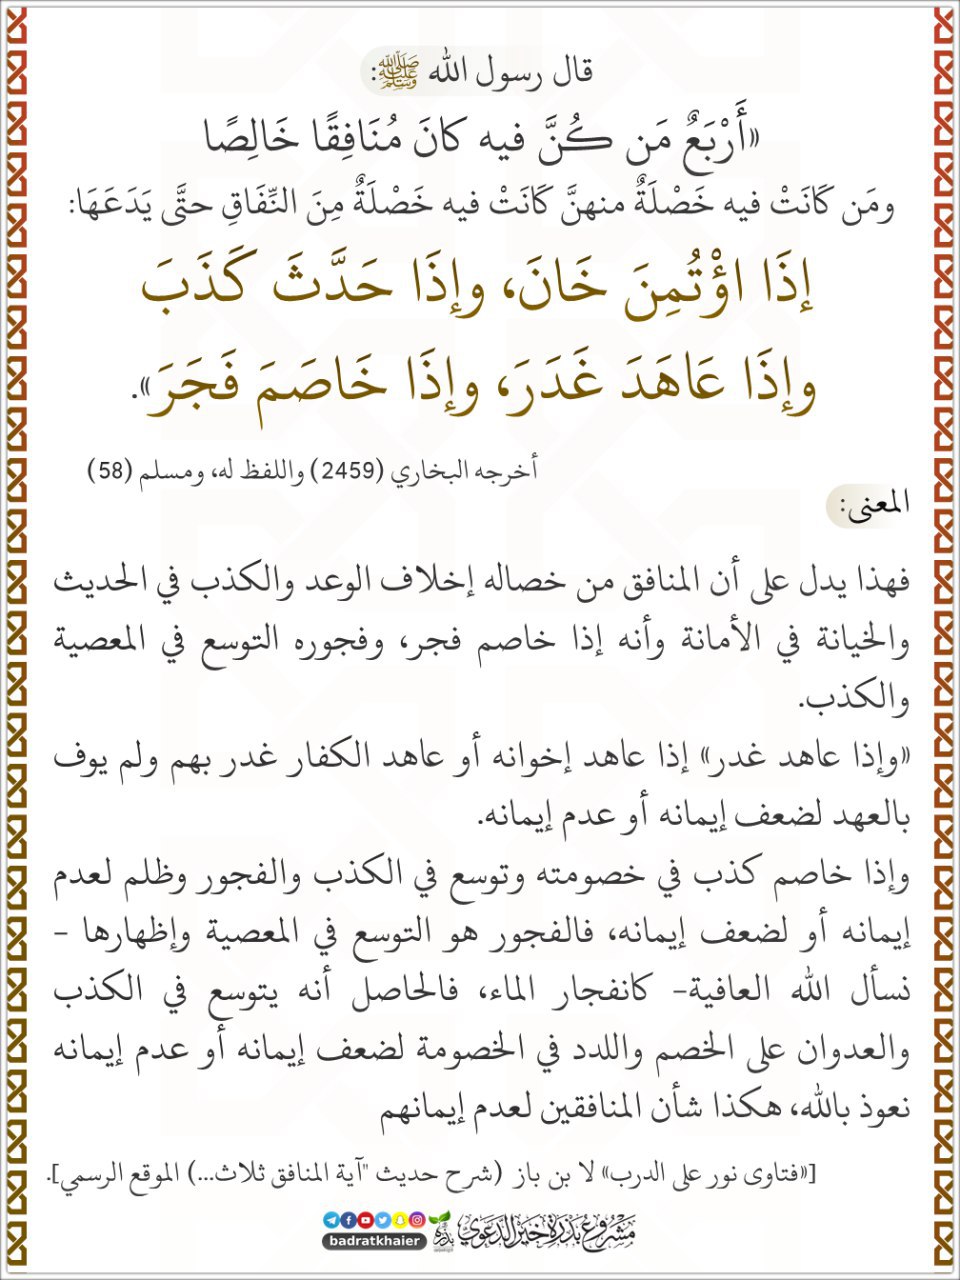 قال رسول الله ﷺ:
«أَرْبَعٌ مَن كُنَّ فيه كانَ مُنَافِقًا خَالِصًا
ومَن كَانَتْ فيه خَصْلَةٌ منهنَّ كَانَتْ فيه خَصْلَةٌ مِنَ النِّفَاقِ حتَّى يَدَعَهَا:
إذَا اؤْتُمِنَ خَانَ، وإذَا حَدَّثَ كَذَبَ
وإذَا عَاهَدَ غَدَرَ، وإذَا خَاصَمَ فَجَرَ».
أخرجه البخاري (2459) واللفظ له، ومسلم (58)
المعنى:
فهذا يدل على أن المنافق من خصاله إخلاف الوعد والكذب في الحديث
والخيانة في الأمانة وأنه إذا خاصم فجر، وفجوره التوسع في المعصية
والكذب.
«وإذا عاهد غدر» إذا عاهد إخوانه أو عاهد الكفار غدر بهم ولم يوف
بالعهد لضعف إيمانه أو عدم إيمانه.
وإذا خاصم كذب في خصومته وتوسع في الكذب والفجور وظلم لعدم
إيمانه أو لضعف إيمانه، فالفجور هو التوسع في المعصية وإظهارها –
نسأل الله العافية– كانفجار الماء، فالحاصل أنه يتوسع في الكذب
والعدوان على الخصم واللدد في الخصومة لضعف إيمانه أو عدم إيمانه
نعوذ بالله، هكذا شأن المنافقين لعدم إيمانهم
[«فتاوى نور على الدرب» لا بن باز (شرح حديث "آية المنافق ثلاث...) الموقع الرسمي].
مَشْرُوعُ بَذْرَةُ خَيْرٍ الدَّعَوِي
badratkhaier